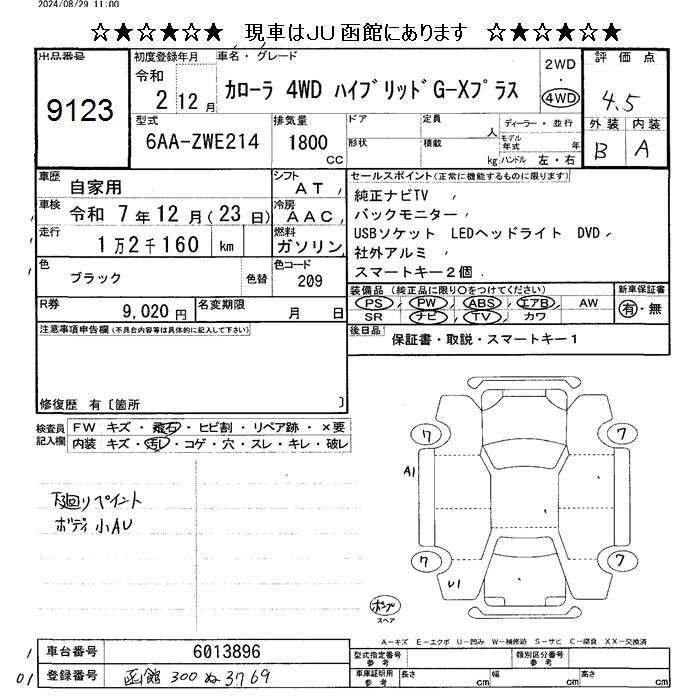 2024/08/29 11:00
☆★☆★☆★ 現車はJU函館にあります ☆★☆★☆★
出品番号
9123
初度登録年月
令和
2 12月
車名・グレード
カローラ 4WD ハイブリッドG-Xプラス
2WD
・
4WD
評価点
4.5
外装 内装
B A
型式
6AA-ZWE214
排気量
1800
CC
ドア
形状
定員
人
積載
kg
ディーラー・並行
モデル年式 年
ハンドル 左・右
車歴
自家用
シフト
AT
車検
令和 7年12月(23日)
冷房
AAC
走行
1万2千160 km
燃料
ガソリン
色
ブラック
色替
色コード
209
セールスポイント(正常に機能するものに限ります)
純正ナビTV
バックモニター
USBソケット LEDヘッドライト DVD
社外アルミ
スマートキー2個
装備品 (純正品に限り○をつけてください)
PS PW ABS エアB AW
SR ナビ TV カワ
新車保証書
有・無
R券
9,020円
名変期限
月 日
後日品
保証書・取説・スマートキー1
注意事項申告欄(不具合内容等は具体的に記入して下さい)
修復歴 有〔箇所 〕
検査員記入欄
FW キズ・飛石・ヒビ割・リペア跡・×要
内装 キズ・汚レ・コゲ・穴・スレ・キレ・破レ
下廻りペイント
ボディ小AU
7 7
A1
7 7
U1
スペア
A-キズ E-エクボ U-凹み W-補修跡 S-サビ C-腐食 XX-交換済
車台番号
6013896
登録番号
函館 300 ぬ 3769
型式指定番号
参考
類別区分番号
参考
車庫証明用
参考
長さ cm
幅 cm
高さ cm